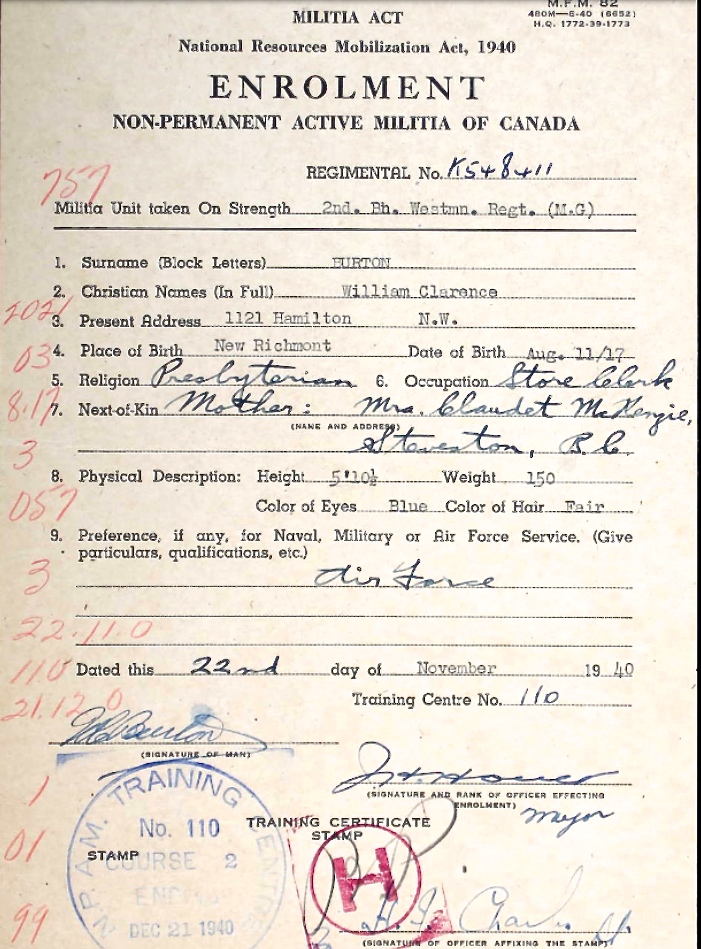 M.F.M. 82
480M—6-40 (6652)
H.Q. 1772-39-1773
MILITIA ACT
National Resources Mobilization Act, 1940
ENROLMENT
NON-PERMANENT ACTIVE MILITIA OF CANADA
REGIMENTAL No. K548411
757
Militia Unit taken On Strength 2nd. Bn. Westmn. Regt. (M.G)
1. Surname (Block Letters) BURTON
2. Christian Names (In Full) William Clarence
2021
3. Present Address 1121 Hamilton N.W.
03
4. Place of Birth New Richmont Date of Birth Aug. 11/17
5. Religion Presbyterian 6. Occupation Store Clerk
8.17
7. Next-of-Kin Mother: Mrs. Claudet McKenzie,
(NAME AND ADDRESS)
Steveston, B.C.
3
8. Physical Description: Height 5'10½ Weight 150
057
Color of Eyes Blue Color of Hair Fair
9. Preference, if any, for Naval, Military or Air Force Service. (Give
particulars, qualifications, etc.)
3
Air Force
22.11.0
110
Dated this 22nd day of November 1940
21.12.0
Training Centre No. 110
Burton
(SIGNATURE OF MAN)
(SIGNATURE AND RANK OF OFFICER EFFECTING
ENROLMENT)
Major
1
TRAINING CERTIFICATE
STAMP
01
STAMP
N.P.A.M. TRAINING CENTRE
No. 110
COURSE 2
DEC 21 1940
H
99
(SIGNATURE OF OFFICER AFFIXING THE STAMP)